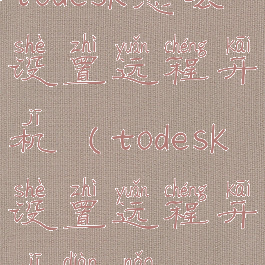 todesk
shè zhì yuǎn chéng kāi
设置远程开
jī
机（todesk
shè zhì yuǎn chéng kāi
设置远程开
jī diàn nǎo